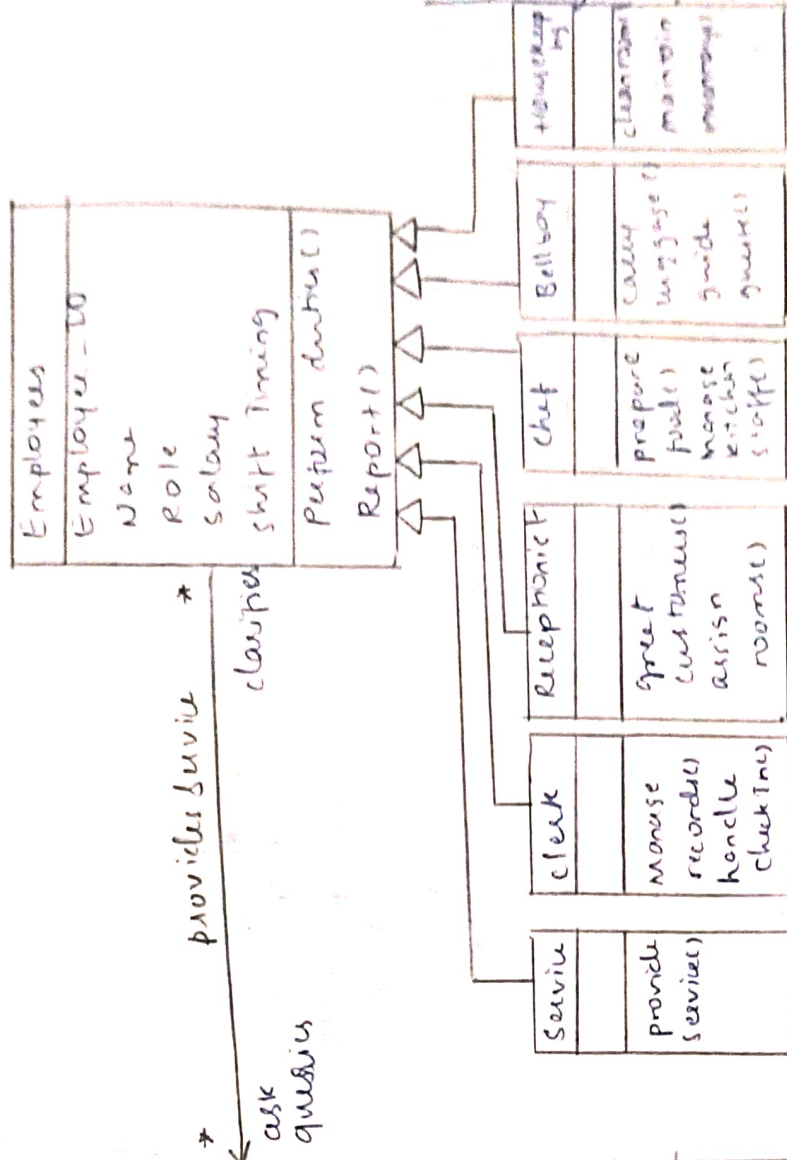 Employees
Employee_ID
Name
Role
Salary
Shift Timing
Perform duties()
Report()
*
provides service
*
clarifies
ask
queries
Service
provide
service()
Clerk
Manage
records()
handle
checkIn()
Receptionist
greet
customers()
assign
rooms()
Chef
prepare
food()
manage
kitchen
staff()
Bellboy
carry
luggage()
guide
guests()
Housekeep
ing
clean room
maintain